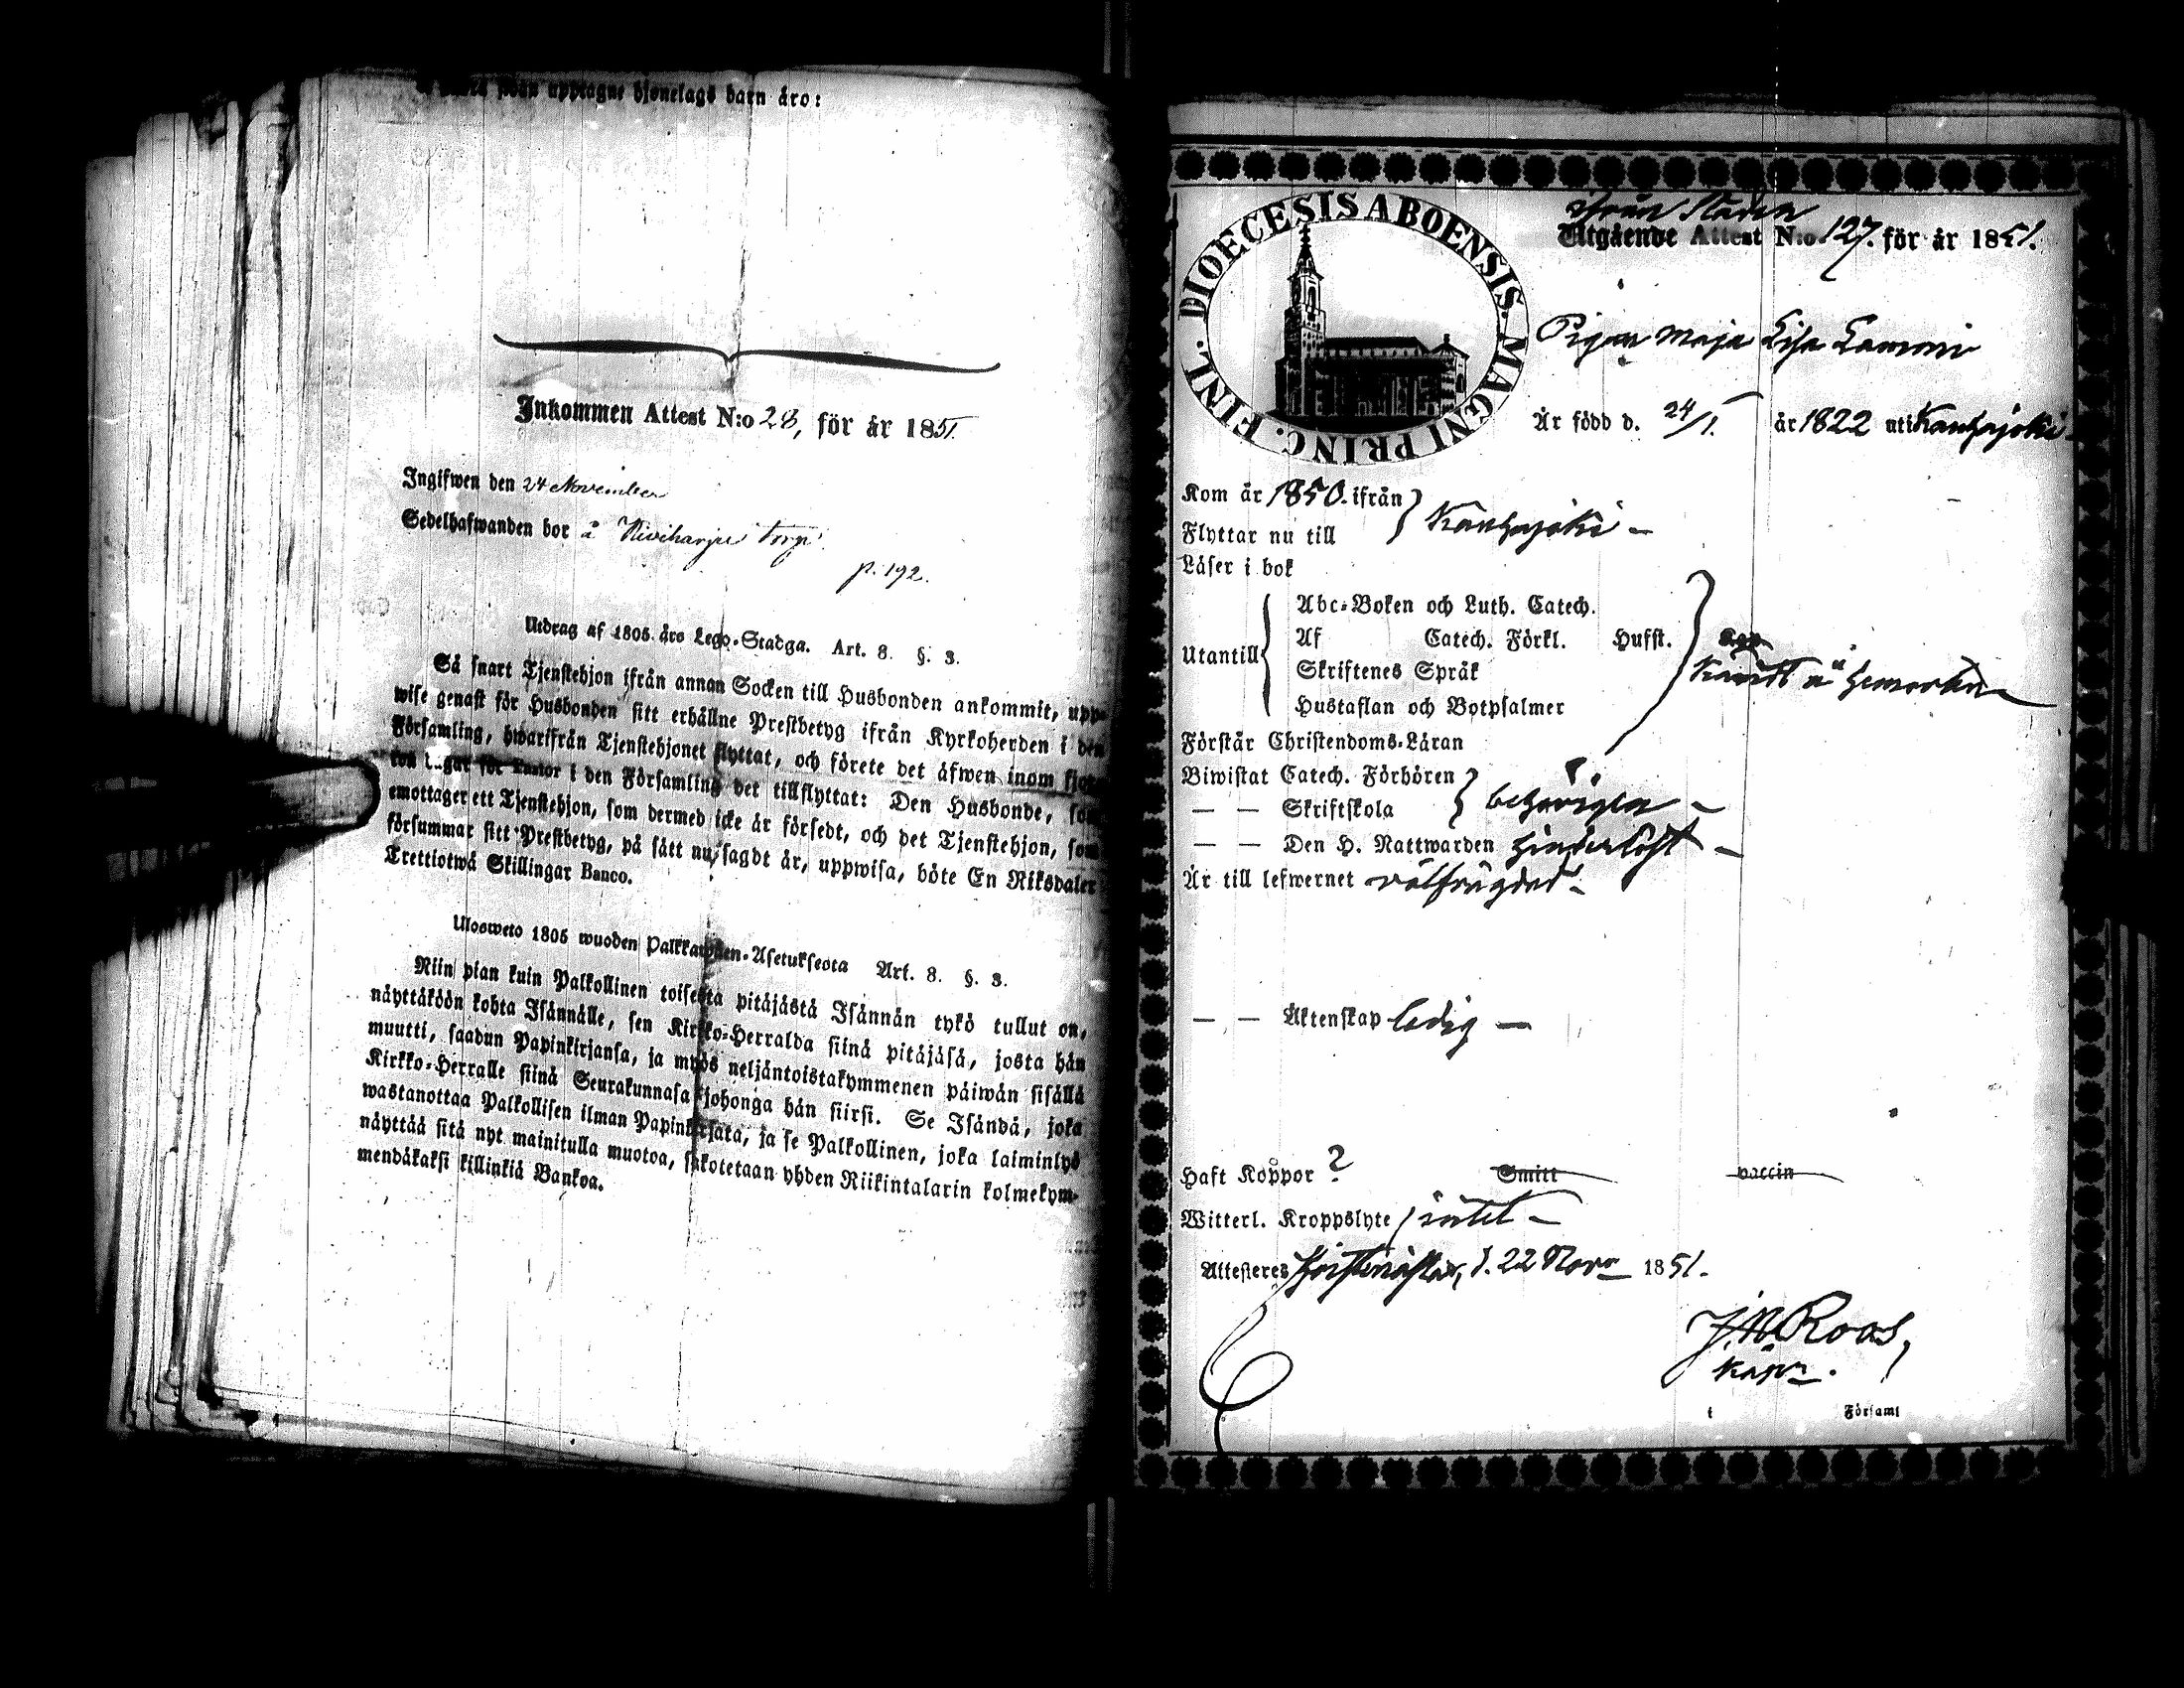 upptagne hjonelags barn äro:
Inkommen Attest N:o 28, för år 1851.
Ingifwen den 24 November
Sedelhafwanden bor å Kiviharju torp.
p. 192.
Utdrag af 1805 års Lego-Stadga. Art. 8. §. 3.
Så snart Tjenstehjon ifrån annan Socken till Husbonden ankommit, upp-
wise genast för Husbonden sitt erhållne Prestbetyg ifrån Kyrkoherden i den
Församling, hwarifrån Tjenstehjonet flyttat, och förete det äfwen inom fjor-
ton dagar för Pastor i den Församling det tillflyttat: Den Husbonde, som
emottager ett Tjenstehjon, som dermed icke är försedt, och det Tjenstehjon, som
försummar sitt Prestbetyg, på sätt nu sagdt är, uppwisa, böte En Riksdaler
Trettiotwå Skillingar Banco.
Ulosweto 1805 wuoden Palkkawäen-Asetuksesta Art. 8. §. 3.
Niin pian kuin Palkollinen toisesta pitäjästä Isännän tykö tullut on,
näyttäköön kohta Isännälle, sen Kirkko-Herralda siinä pitäjäsä, josta hän
muutti, saadun Papinkirjansa, ja myös neljäntoistakymmenen päiwän sisällä
Kirkko-Herralle siinä Seurakunnasa johonga hän siirsi. Se Isändä, joka
wastanottaa Palkollisen ilman Papinkirjata, ja se Palkollinen, joka laiminlyö
näyttää sitä nyt mainitulla muotoa, sakotetaan yhden Riikintalarin kolmekym-
mendäkaksi killinkiä Bankoa.
DIOECESIS ABOENSIS. MAGNI PRINC. FINL.
ifrån Staden
Utgående Attest N:o 127. för år 1851.
Pigan Maja Lisa
Är född d. 24/1. år 1822 uti Kauhajoki
Kom år 1850. ifrån
Flyttar nu till } Kauhajoki –
Läser i bok
Utantill { Abc-Boken och Luth. Catech.
Af Catech. Förkl. Hufst.
Skriftenes Språk
Hustaflan och Botpsalmer
Förstår Christendoms-Läran
Biwistat Catech. Förhören
— — Skriftskola } behörigen –
— — Den H. Nattwarden hinderlöst –
Är till lefwernet wälfrägdad –
— — Äktenskap ledig –
Haft Koppor ? Smitt vaccin
Witterl. Kroppslyte intet –
Attesteres d. 22 Novr 1851.
J. N. Roos,
i Församl